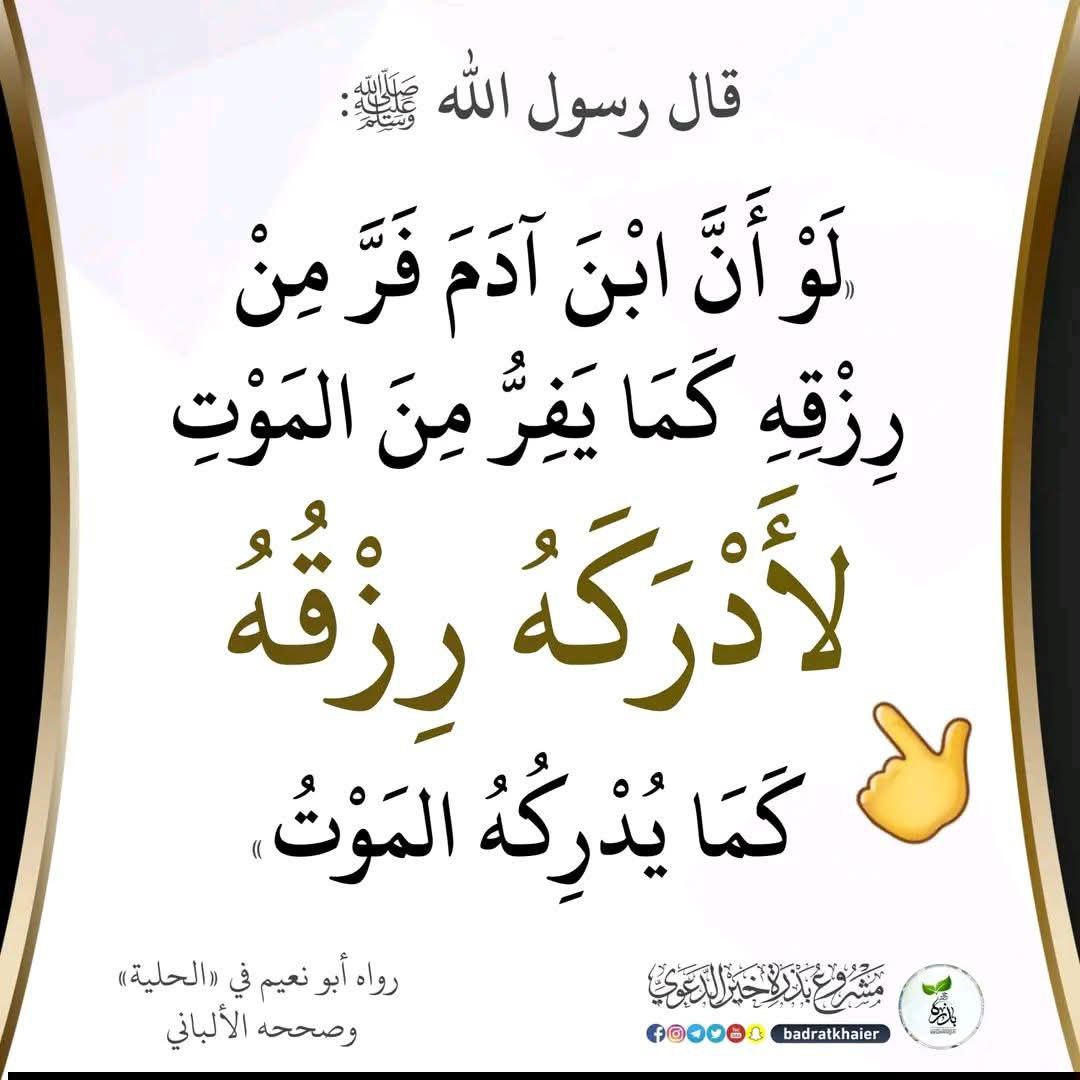 قال رسول الله ﷺ:
«لَوْ أَنَّ ابْنَ آدَمَ فَرَّ مِنْ
رِزْقِهِ كَمَا يَفِرُّ مِنَ المَوْتِ
لأَدْرَكَهُ رِزْقُهُ
كَمَا يُدْرِكُهُ المَوْتُ»
رواه أبو نعيم في «الحلية»
وصححه الألباني
مَشْرُوعُ بَذْرَةُ خَيْرٍ الدَّعَوِي
badratkhaier